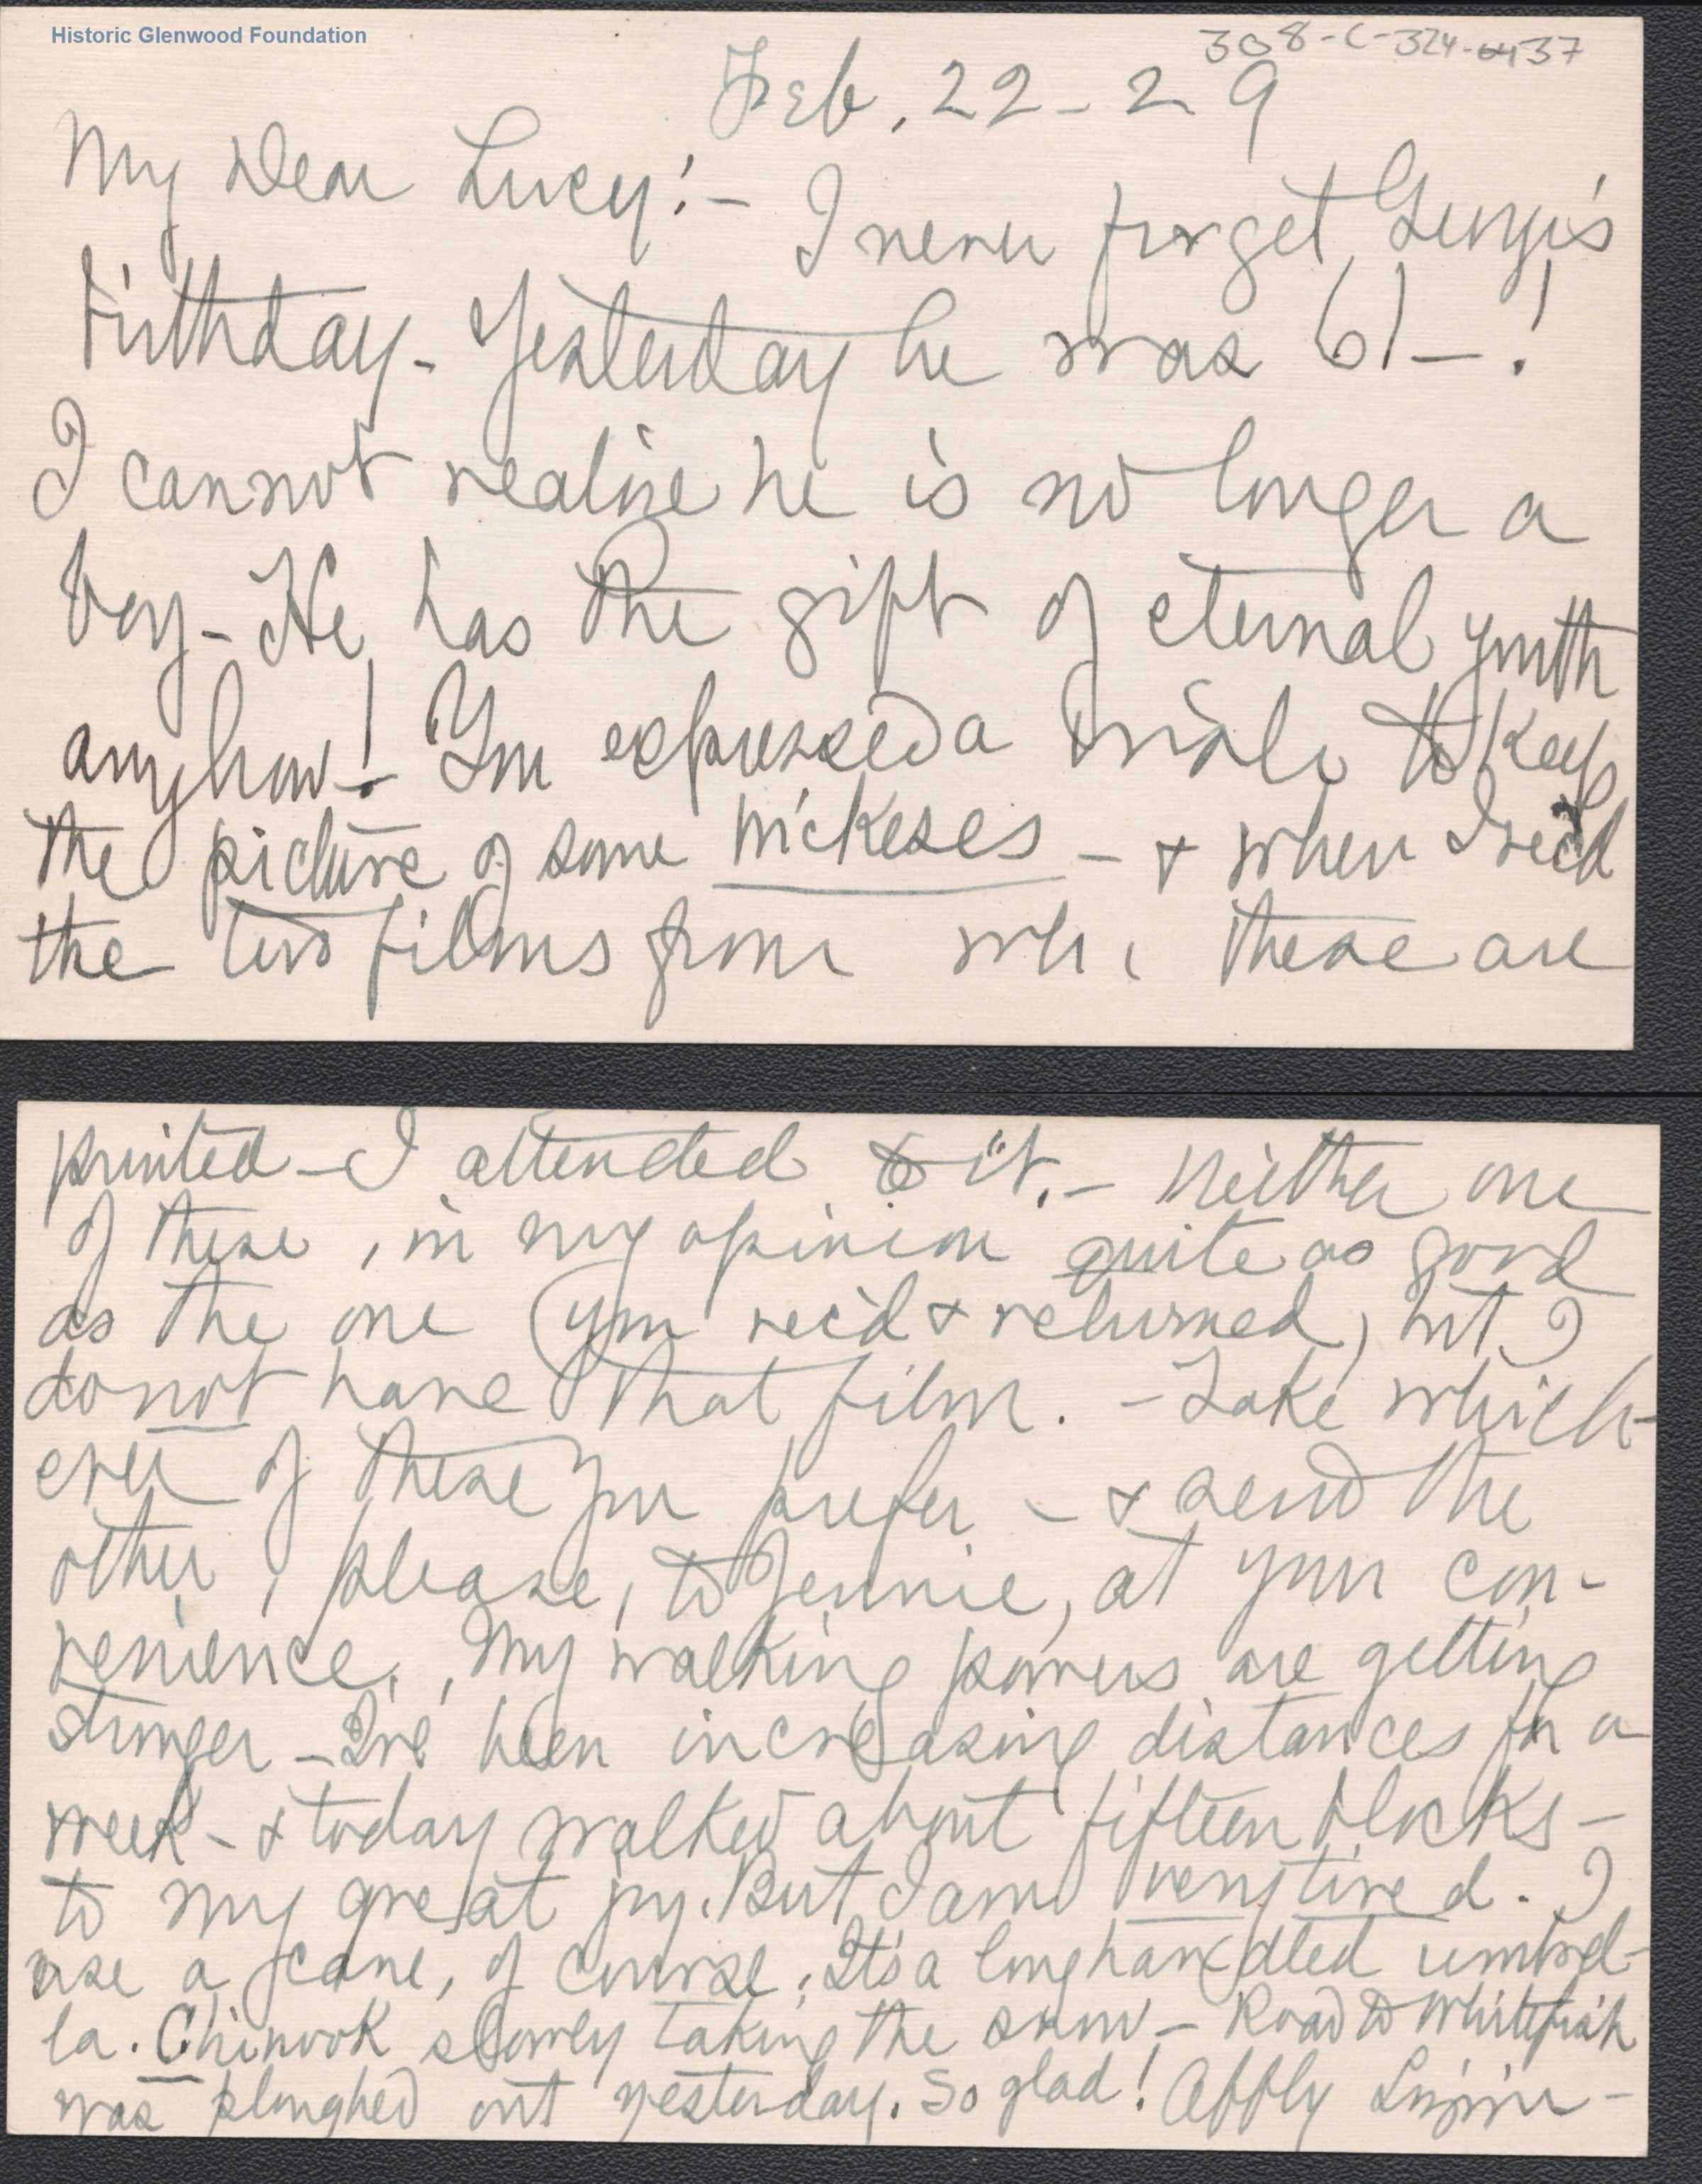 Historic Glenwood Foundation
308-C-324-437
Feb. 22 - 29
My Dear Lucy! - I never forget
birthday - Yesterday he was 61 - !
I cannot realize he is no longer a
boy - He has the gift of eternal youth
anyhow! - You expressed a wish to keep
the picture of some Wickeses - & when I rec'd
the two films from wh. these are
printed - I attended to it. - Neither one
of these, in my opinion quite as good
as the one (you rec'd & returned) but I
do not have that film. - Take which-
ever of these you prefer - & send the
other, please, to Jennie, at your con-
venience. My walking powers are getting
stronger - I've been increasing distances for a
week - & today walked about fifteen blocks -
to my great joy. But I am very tired. I
use a cane, of course. It's a long handled umbrel-
la. Chinook slowly taking the snow - Road to Whitefish
was ploughed out yesterday. So glad! Affly